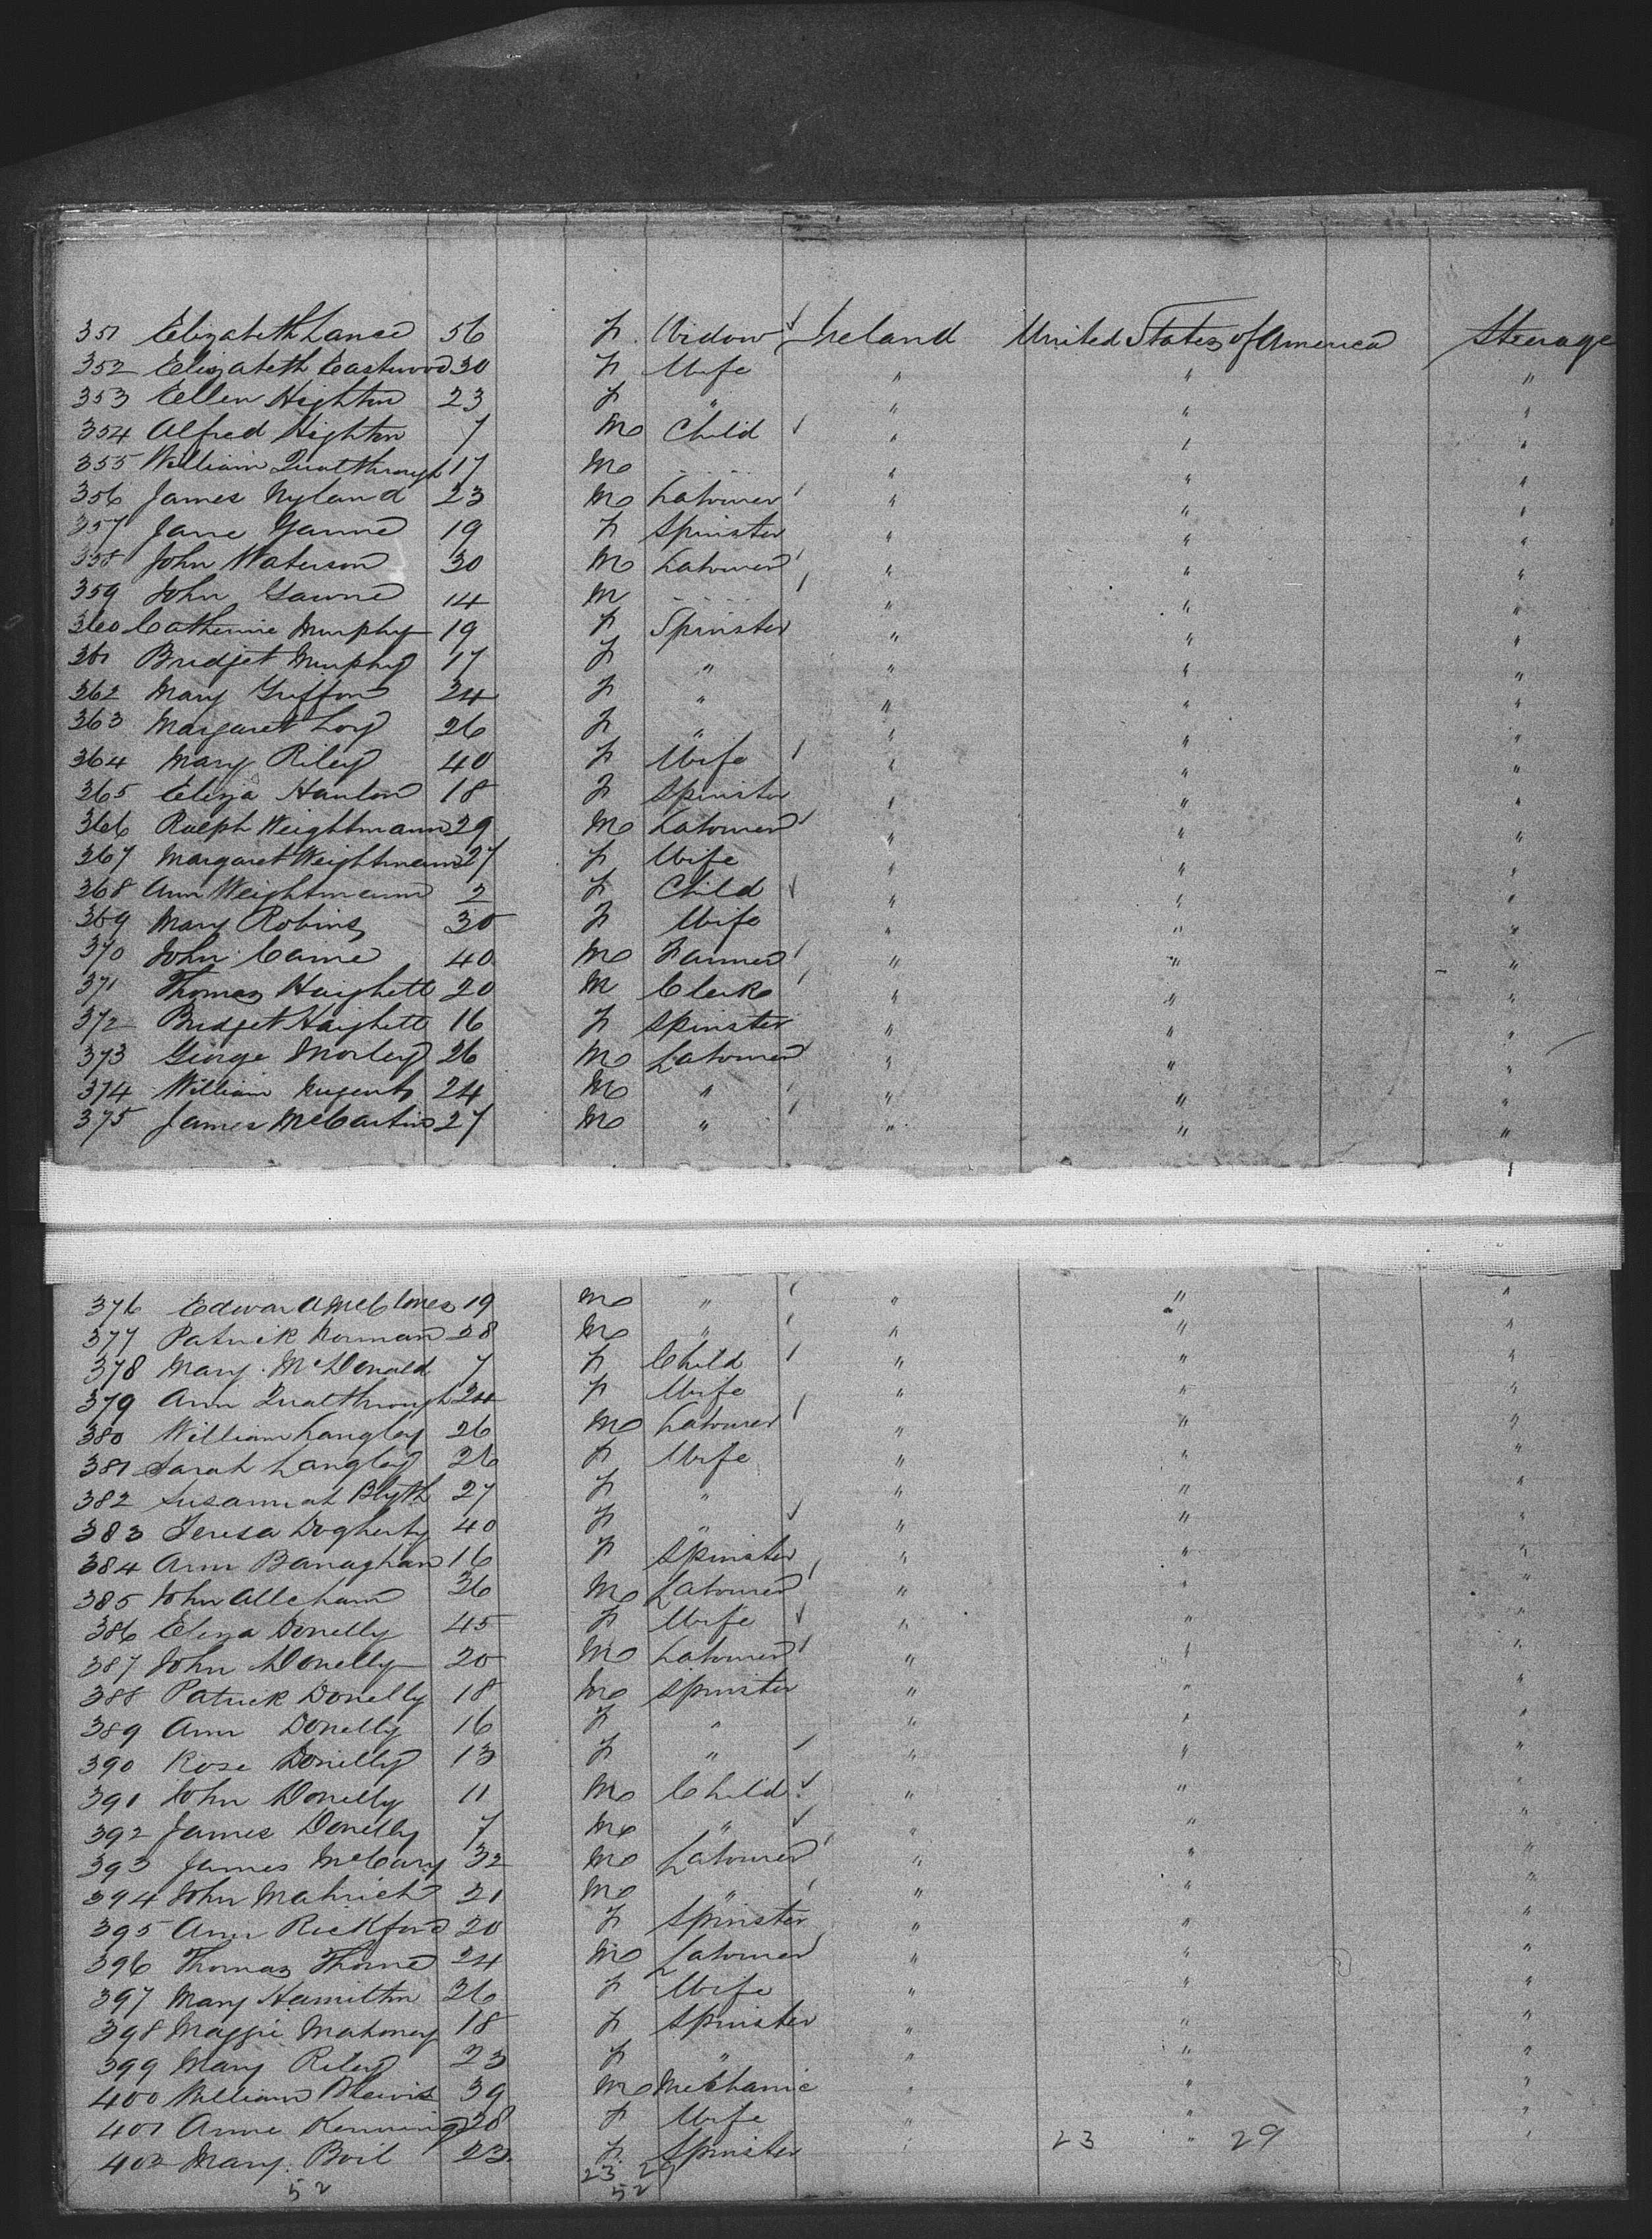 351 Elizabeth Lance 56 F. Widow Ireland United States of America Steerage
352 Elizabeth Eastwood 30 F Wife " " "
353 Ellen Highton 23 F " " " "
354 Alfred Highton 7 M Child " " "
355 William Qualthrough 17 M ..... " " "
356 James Nyland 23 M Labourer " " "
357 Jane 19 F Spinster " " "
358 John Waterson 30 M Labourer " " "
359 John Gawne 14 M ..... " " "
360 Catherine Murphy 19 F Spinster " " "
361 Bridget Murphy 17 F " " " "
362 Mary Griffon 24 F " " " "
363 Margaret 26 F " " " "
364 Mary Riley 40 F Wife " " "
365 Eliza Hanlon 18 F Spinster " " "
366 Ralph Weightmann 29 M Labourer " " "
367 Margaret Weightmann 27 F Wife " " "
368 Ann Weightmann 2 F Child " " "
369 Mary Robins 30 F Wife " " "
370 John Caine 40 M Farmer " " "
371 Thomas Haighett 20 M Clerk " " "
372 Bridget Haighett 16 F Spinster " " "
373 George Morley 26 M Labourer " " "
374 William Nugent 24 M " " " "
375 James McCartin 27 M " " " "
376 Edward 19 M " " " "
377 Patrick Norman 28 M " " " "
378 Mary McDonald 7 F Child " " "
379 Ann Qualthrough 24 F Wife " " "
380 William Langley 26 M Labourer " " "
381 Sarah Langley 26 F Wife " " "
382 Susannah Blyth 27 F " " " "
383 Teresa Dogherty 40 F " " " "
384 Ann Banaghan 16 F Spinster " " "
385 John 36 M Labourer " " "
386 Eliza Donelly 45 F Wife " " "
387 John Donelly 20 M Labourer " " "
388 Patrick Donelly 18 M Spinster " " "
389 Ann Donelly 16 F " " " "
390 Rose Donelly 13 F " " " "
391 John Donelly 11 M Child " " "
392 James Donelly 7 M " " " "
393 James 32 M Labourer " " "
394 John 21 M " " " "
395 Ann Rickford 20 F Spinster " " "
396 Thomas Thorne 24 M Labourer " " "
397 Mary Hamilton 26 F Wife " " "
398 Maggie Mahoney 18 F Spinster " " "
399 Mary Riley 23 F " " " "
400 William 39 M Mechanic " " "
401 Anne 28 F Wife " " "
402 Mary Boil 23 F. Spinster " 23 " 29 "
23 29
52 52